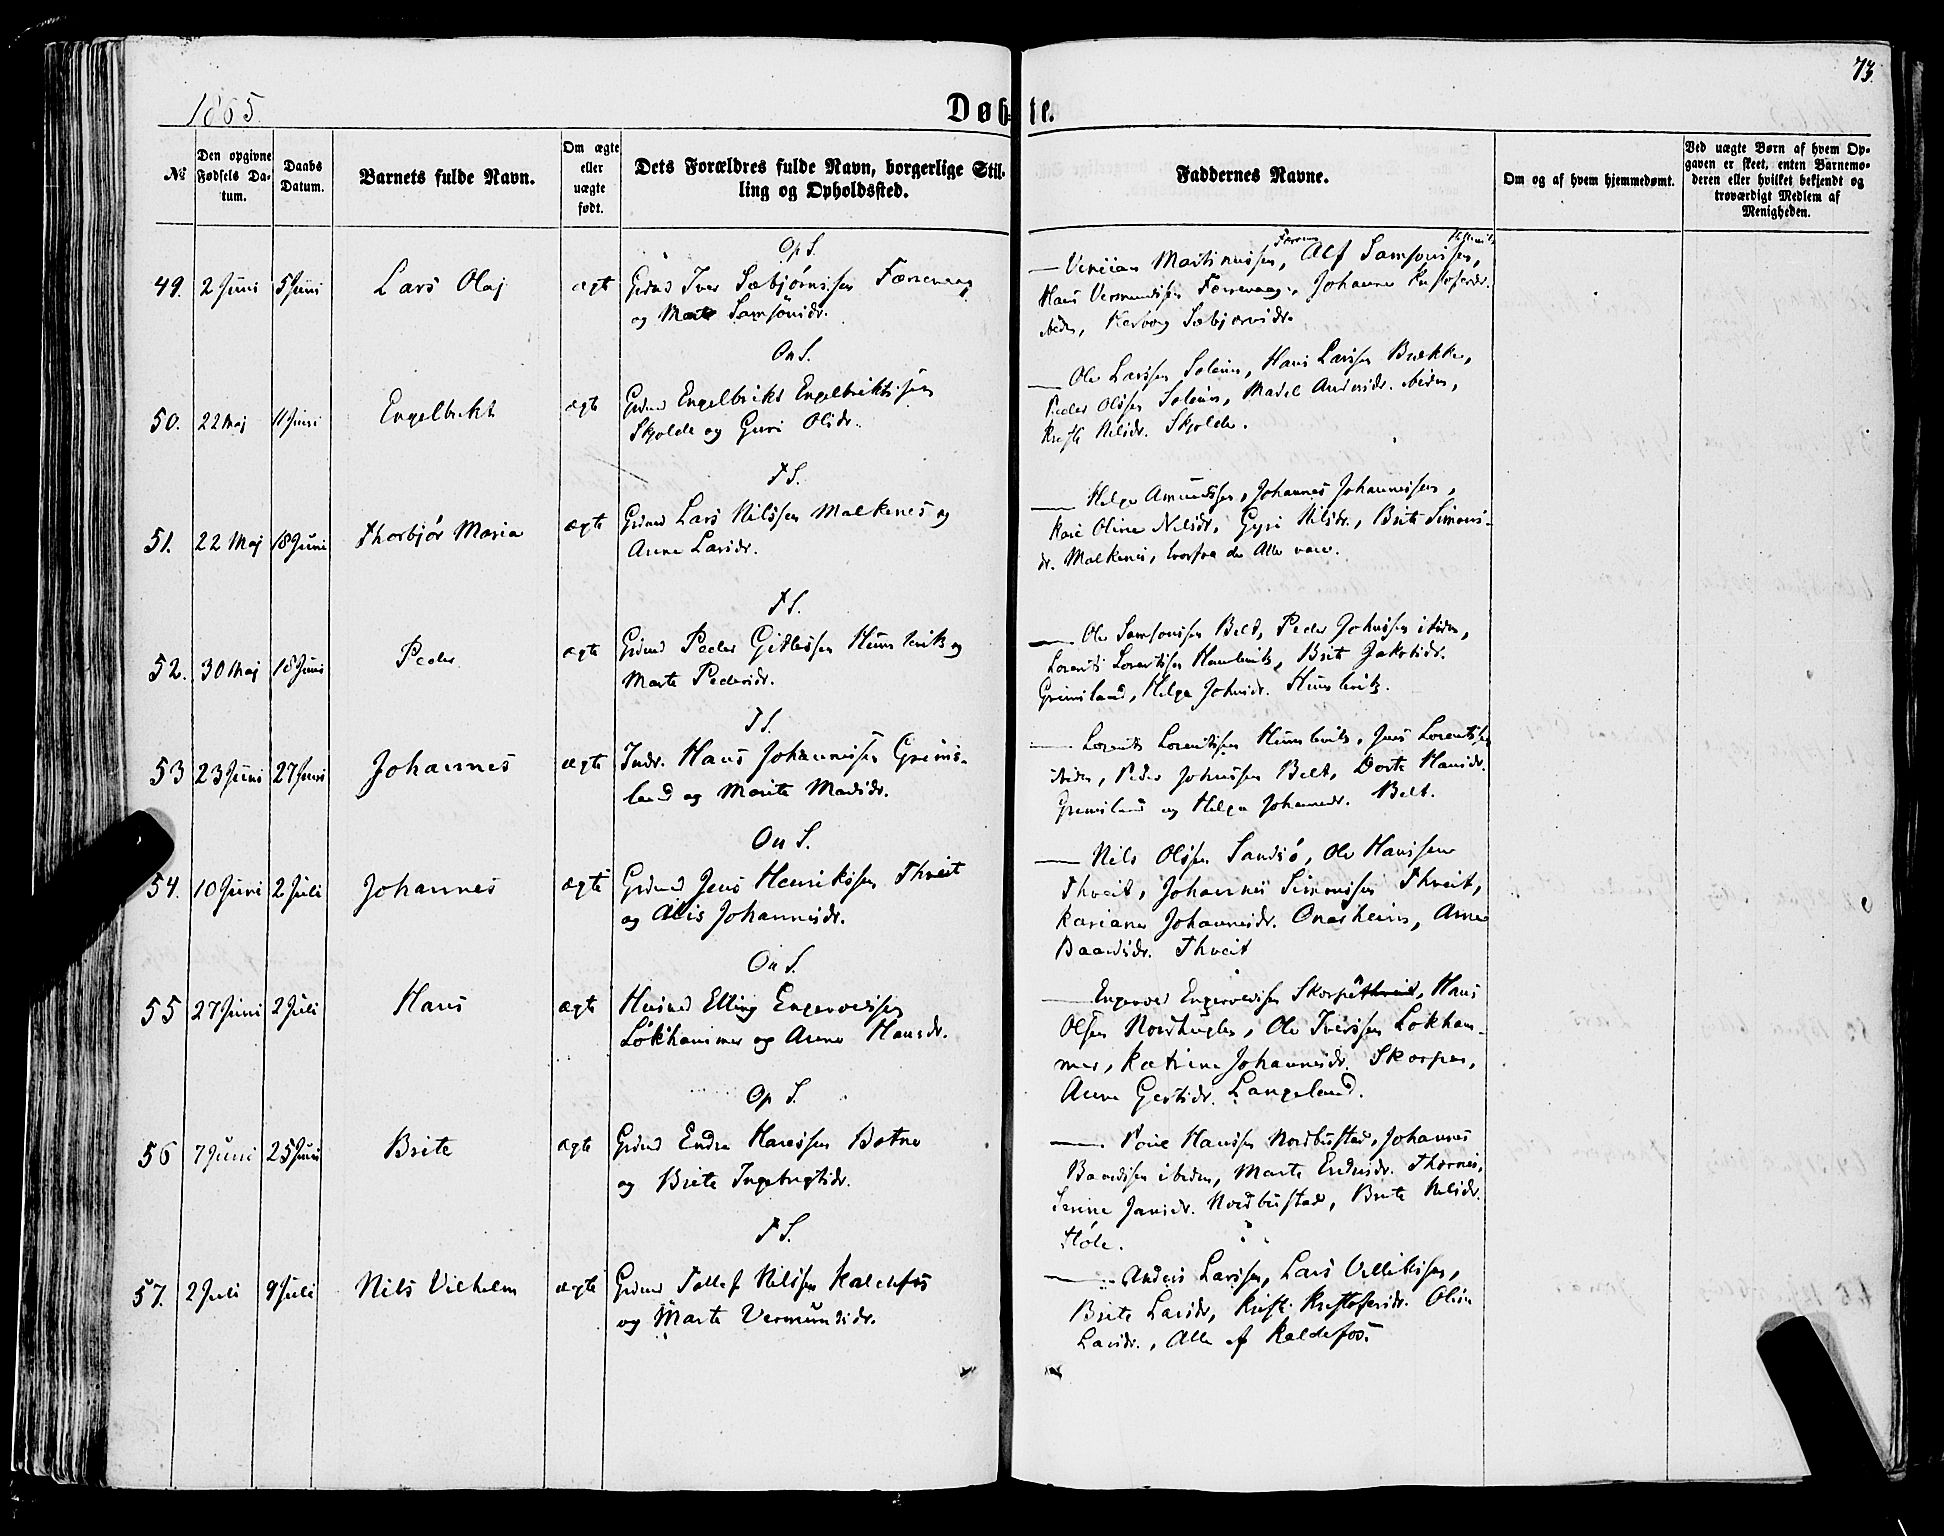 73.
1865.
Døbte.
№
Den opgivne Fødsels Datum.
Daabs Datum.
Barnets fulde Navn.
Om ægte eller uægte født.
Dets Forældres fulde Navn, borgerlige Stilling og Opholdssted.
Faddernes Navne.
Om og af hvem hjemmedømt.
Ved uægte Børn af hvem Opgaven er skeet, enten Barnemoderen eller hvilket bekjendt og troværdigt Medlem af Menigheden.
Op S.
49. 2 Juni 5 Juni Lars Olaj ægt Grdmd Iver Sæbjørnssen Færrevaag
og Marte Samsonsdr.
Martinussen, Alf Samsonssen,
Hans Vermundssen Færrevaag, Johanne
ibidem, Sæbjørnsdr.
On S.
50. 22 Maj 11 Juni Engelbrikt ægte Grdmd Engelbrikt Engelbriktssen
Skjolde og Guri Olsdr.
Ole Larssen Soleim, Hans Larssen Brække,
Peder Olssen Soleim, Madel Andersdr. ibidem,
Nilsdr. Skjolde.
F S.
51. 22 Maj 18 Juni Thorbjør Maria ægte Grdmd Lars Nilssen Malkenes og
Anne Larsdr.
Helge Amundssen, Johannes Johannessen,
Kari Oline Nilsdr., Gyri Nilsdr., Brite Simons-
dr. Malkenes, hvorfra de Alle vare.
F S.
52. 30 Maj 18 Juni Peder ægte Grdmd Peder Gitlessen Humlevik og
Marte Pedersdr.
Ole Samsonssen Belt, Peder Johnssen ibidem,
Lorents Lorentssen Humlevik, Brite Jakobsdr.
Grimsland, Helga Johnsdr. Humlevik.
F S.
53 23 Juni 27 Juni Johannes ægte Indr. Hans Johannessen Grims-
land og Marite Madsdr.
Lorents Lorentssen Humlevik, Jens Lorentssen
ibidem, Peder Johnssen Belt, Dorte Hansdr.
Grimsland og Helga Johannesdr. Belt.
On S.
54. 10 Juni 2 Juli Johannes ægte Grdmd Jens Henrikssen Thveit
og Alis Johannesdr.
Nils Olssen Sandsø, Ole Hanssen
Thveit, Johannes Simonssen Thveit,
Kariane Johannesdr. Onarheim, Anne
Baardsdr. Thveit
On S.
55 27 Juni 2 Juli Hans ægte Husmd Elling Engevoldssen
Løkhammer og Anne Hansdr.
Engevold Engevoldssen Skorpe, Hans
Olssen Nordhugle, Ole Iverssen Løkham-
mer, Katrine Johannesdr. Skorpen,
Anne Gjertsdr. Langeland.
Op S.
56 7 Juni 25 Juni Brite ægte Grdmd Endre Hanssen Botne
og Brite Ingebrigtsdr.
Hanssen Nordbustad, Johannes
Baardssen ibidem, Marte Endresdr. Thornes,
Serine Jansdr. Nordbustad, Brite Nilsdr.
Støle.
F S.
57. 2 Juli 9 Juli Nils Vilhelm ægte Grdmd Tollef Nilssen Kaldefos
og Marte Vermundsdr.
Anders Larssen, Lars Villikssen,
Brite Larsdr., Kristoffersdr. Oline
Larsdr., Alle af Kaldefos.